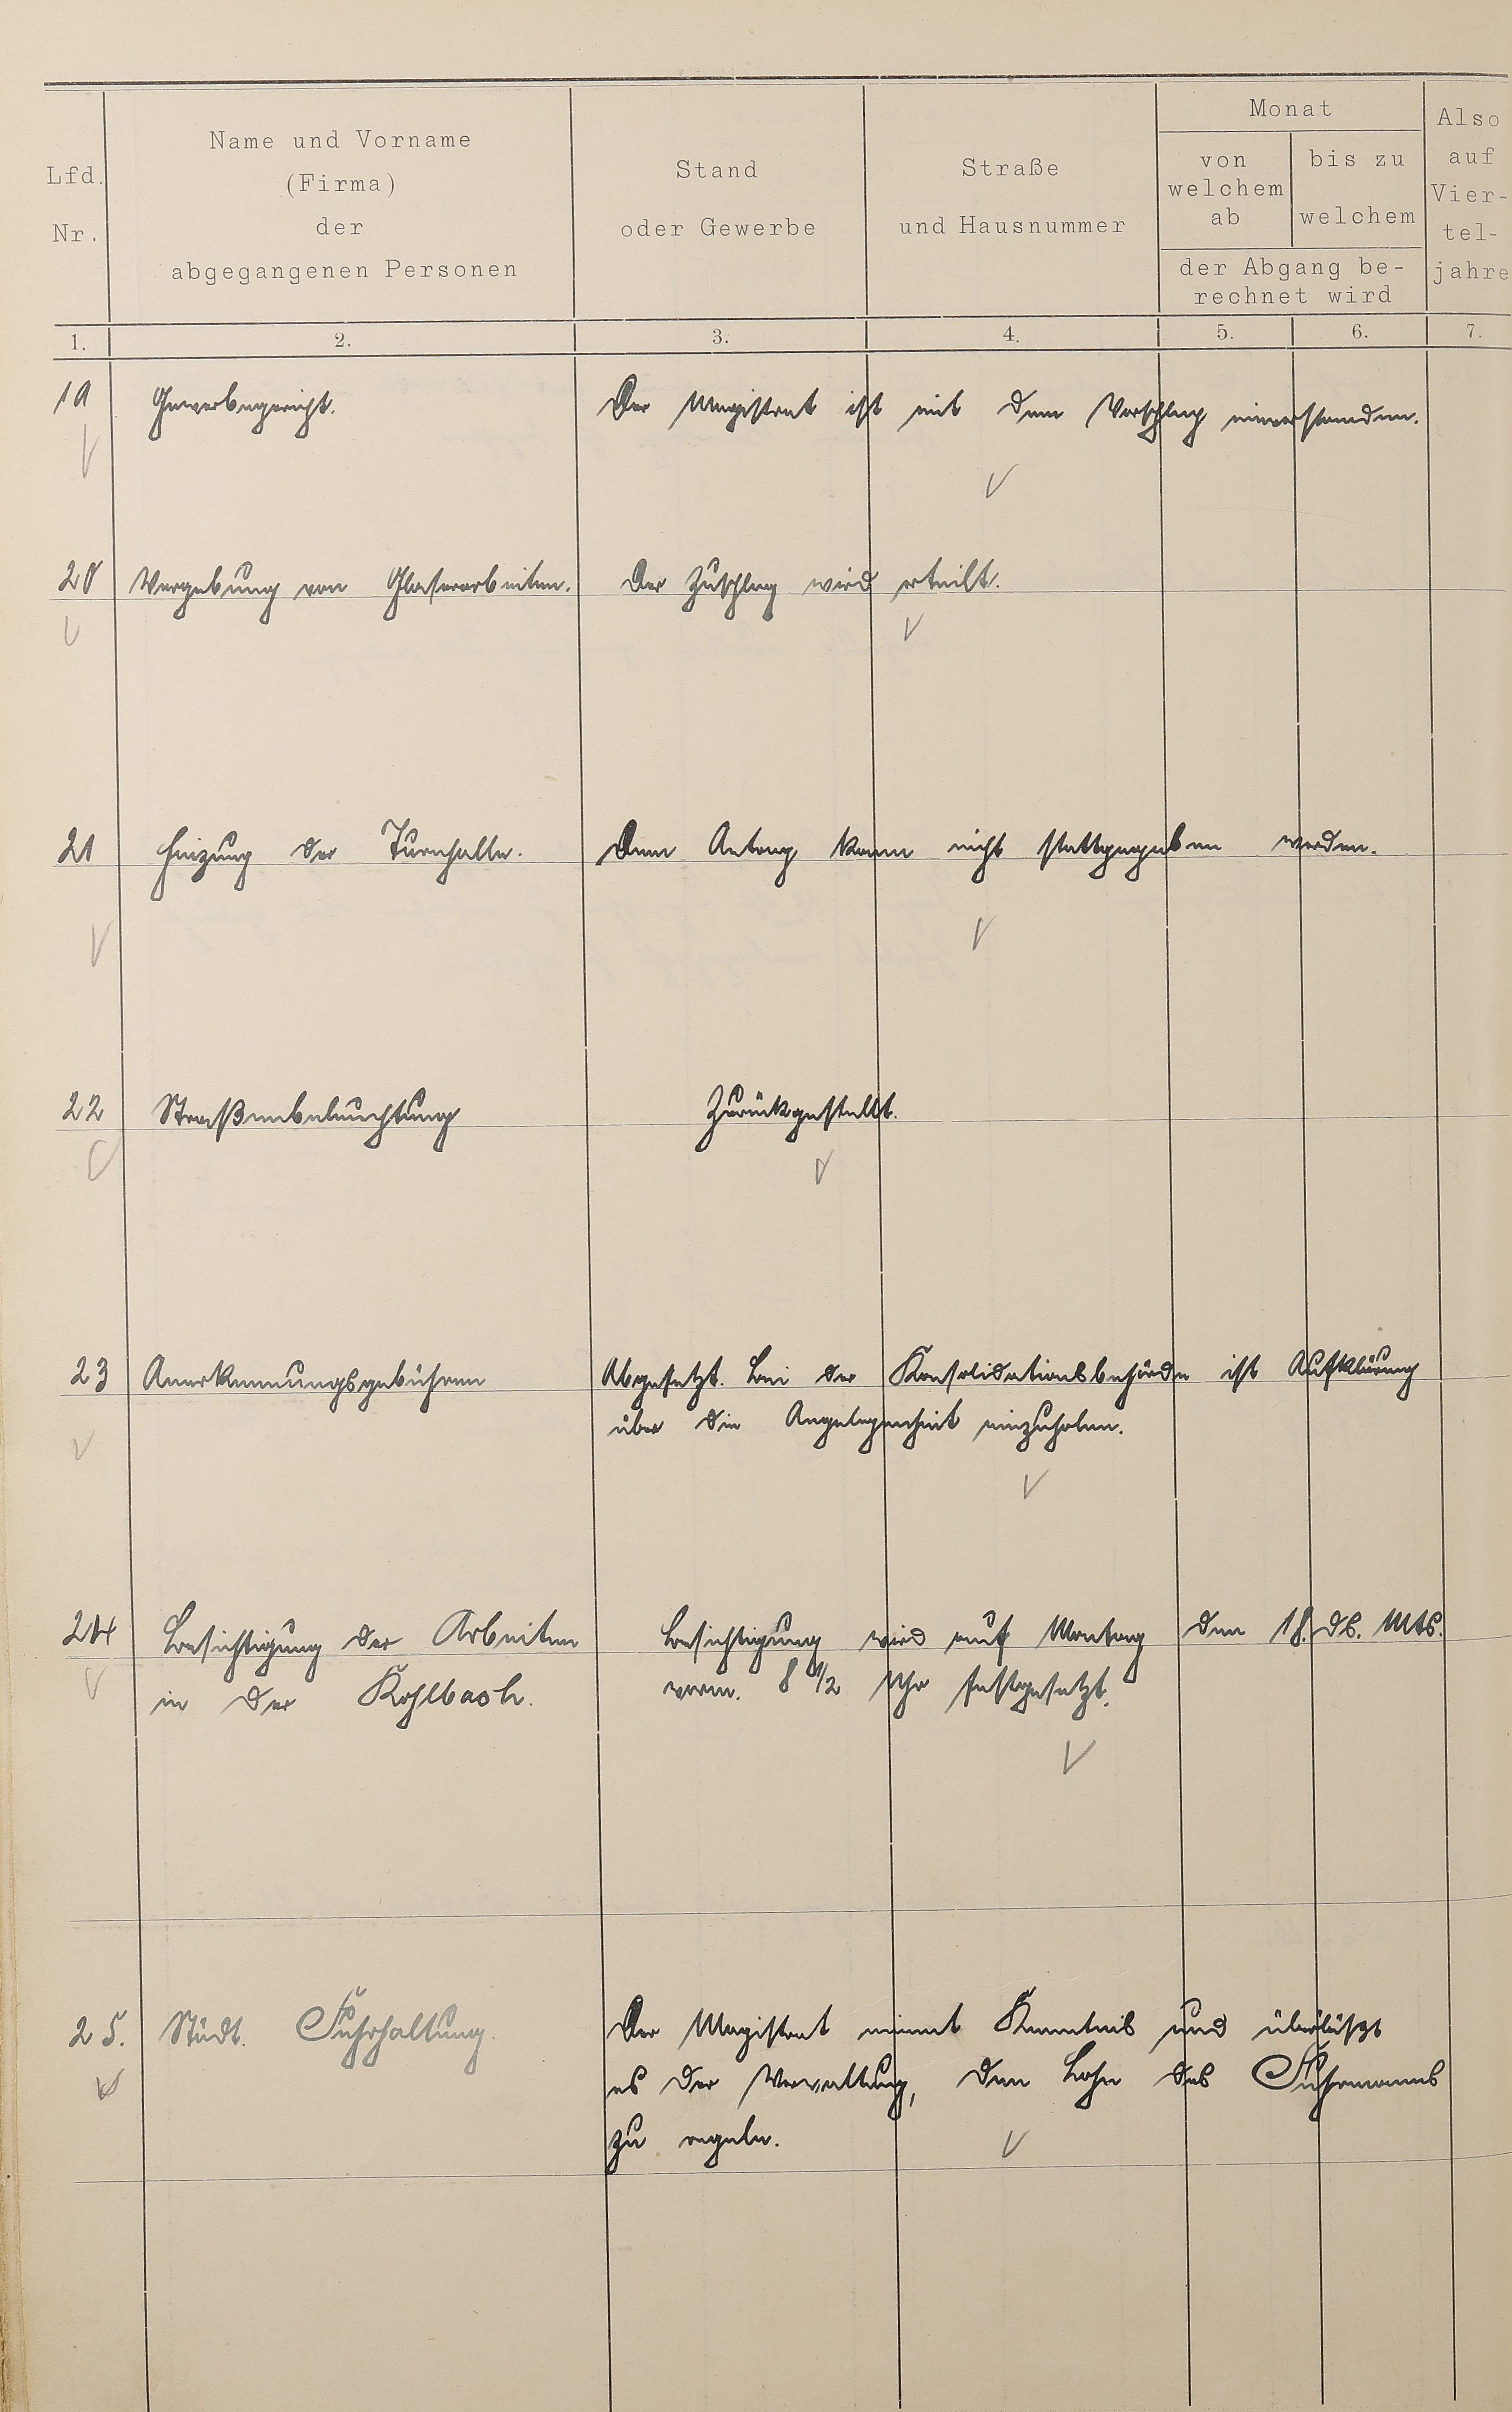 Lfd. Nr.
Name und Vorname
(Firma)
der
abgegangenen Personen
Stand
oder Gewerbe
Straße
und Hausnummer
Monat
von
welchem
ab
bis zu
welchem
der Abgang be-
rechnet wird
Also
auf
Vier-
tel-
jahre
1. 2. 3. 4. 5. 6. 7.
19 Gewerbegericht. Der Magistrat ist mit dem Vorschlag einverstanden.
20 Vergebung von Glaserarbeiten. Der Zuschlag wird erteilt.
21 Heizung der Turnhalle. Dem Antrag kann nicht stattgegeben werden.
22 Straßenbeleuchtung Zurückgestellt.
23 Anerkennungsgebühren Abgesetzt. Bei der Konsolidationsbehörde ist Aufklärung
über die Angelegenheit einzuholen.
24 Besichtigung der Arbeiten Besichtigung wird auf Montag den 18. ds. Mts.
in der Kohlbach. vorm. 8 1/2 Uhr festgesetzt.
25. Städt. Fuhrhaltung. Der Magistrat nimmt Kenntnis und überläßt
es der Verwaltung, den Lohn des Fuhrmanns
zu regeln.